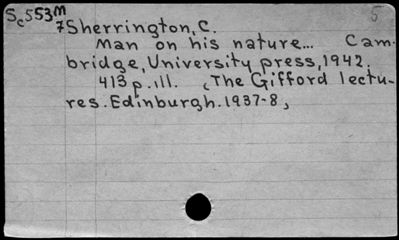 Sc553m 5
7Sherrington, C.
Man on his nature... Cam-
bridge, University press, 1942.
413 p. ill. (The Gifford lectu-
res. Edinburgh. 1937-8,